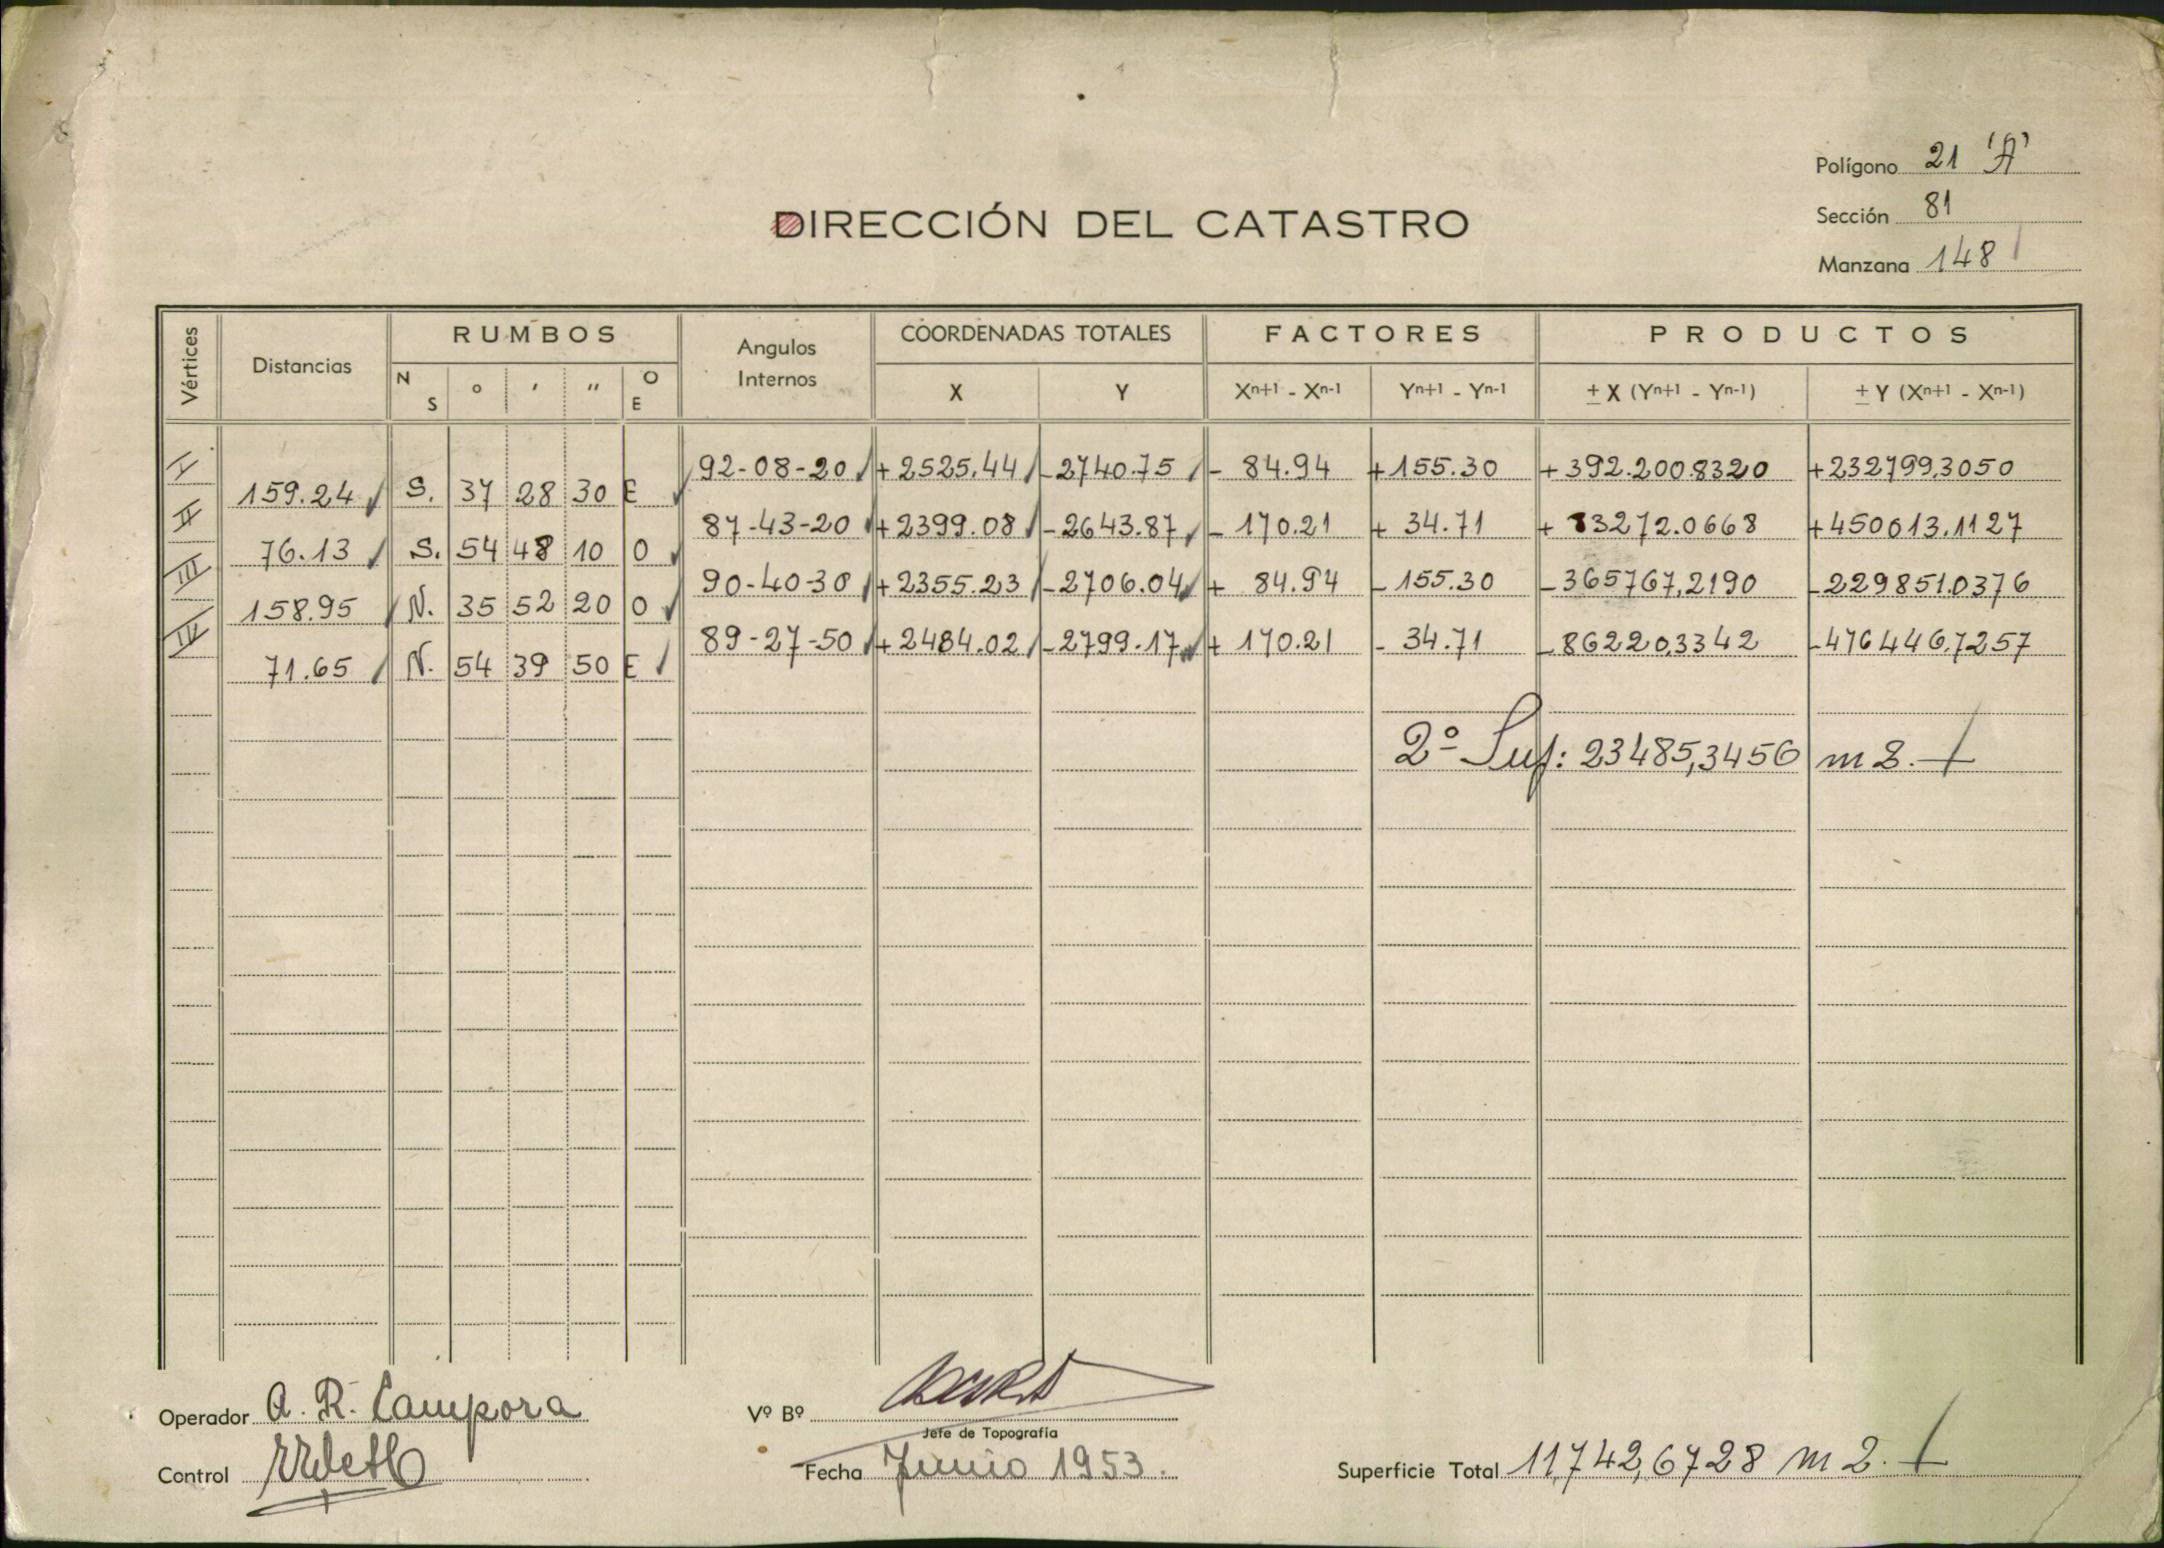 Polígono 21 'A'
Sección 81
Manzana 148
DIRECCIÓN DEL CATASTRO
Vértices Distancias RUMBOS Angulos Internos COORDENADAS TOTALES FACTORES PRODUCTOS
N S ° ' " O E X Y Xn+1 - Xn-1 Yn+1 - Yn-1 ± X (Yn+1 - Yn-1) ± Y (Xn+1 - Xn-1)
I 92-08-20 +2525.44 -2740.75 - 84.94 +155.30 +392.200.8320 +232799,3050
159.24 S. 37 28 30 E
II 87-43-20 +2399.08 -2643.87 - 170.21 + 34.71 + 83272.0668 +450013.1127
76.13 S. 54 48 10 O
III 90-40-30 +2355.23 -2706.04 + 84.94 -155.30 -365767,2190 -229851.0376
158.95 N. 35 52 20 O
IV 89-27-50 +2484.02 -2799.17 + 170.21 - 34.71 -86220,3342 -476446,7257
71.65 N. 54 39 50 E
2º Sup: 23485,3456 m2.
Operador A. R. Campora
Vº Bº
Jefe de Topografía
Control
Fecha Junio 1953.
Superficie Total 11,742,6728 m2.